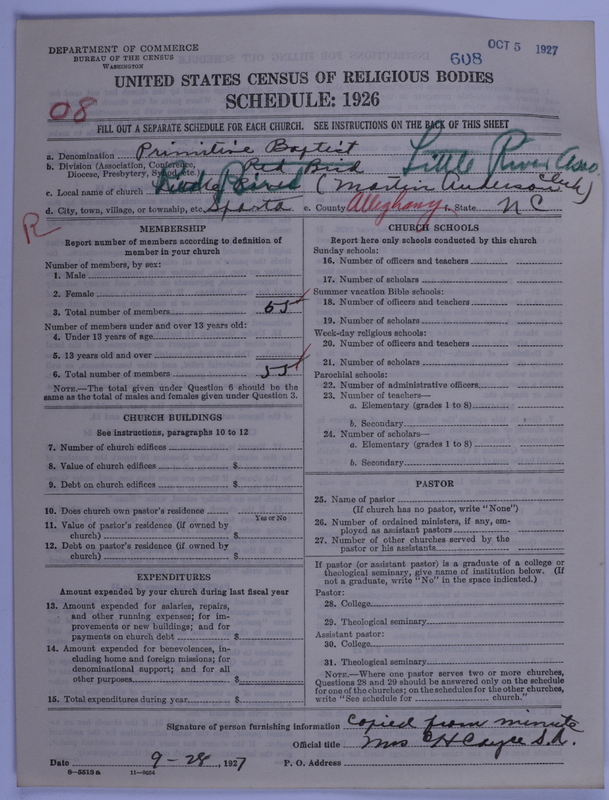 DEPARTMENT OF COMMERCE
BUREAU OF THE CENSUS
WASHINGTON
608
OCT 5 1927
UNITED STATES CENSUS OF RELIGIOUS BODIES
SCHEDULE: 1926
08
FILL OUT A SEPARATE SCHEDULE FOR EACH CHURCH. SEE INSTRUCTIONS ON THE BACK OF THIS SHEET
a. Denomination Primitive Baptist
b. Division (Association, Conference, Diocese, Presbytery, Synod, etc.) Little River Asso.
c. Local name of church (Martin Anderson Clerk)
d. City, town, village, or township, etc. Sparta e. County Alleghany f. State N C
R
MEMBERSHIP
Report number of members according to definition of member in your church
Number of members, by sex:
1. Male
2. Female
3. Total number of members 55
Number of members under and over 13 years old:
4. Under 13 years of age
5. 13 years old and over
6. Total number of members 55
NOTE.—The total given under Question 6 should be the same as the total of males and females given under Question 3.
CHURCH BUILDINGS
See instructions, paragraphs 10 to 12
7. Number of church edifices
8. Value of church edifices $
9. Debt on church edifices $
10. Does church own pastor's residence
Yes or No
11. Value of pastor's residence (if owned by church) $
12. Debt on pastor's residence (if owned by church) $
EXPENDITURES
Amount expended by your church during last fiscal year
13. Amount expended for salaries, repairs, and other running expenses; for improvements or new buildings; and for payments on church debt $
14. Amount expended for benevolences, including home and foreign missions; for denominational support; and for all other purposes $
15. Total expenditures during year $
CHURCH SCHOOLS
Report here only schools conducted by this church
Sunday schools:
16. Number of officers and teachers
17. Number of scholars
Summer vacation Bible schools:
18. Number of officers and teachers
19. Number of scholars
Week-day religious schools:
20. Number of officers and teachers
21. Number of scholars
Parochial schools:
22. Number of administrative officers
23. Number of teachers—
a. Elementary (grades 1 to 8)
b. Secondary
24. Number of scholars—
a. Elementary (grades 1 to 8)
b. Secondary
PASTOR
25. Name of pastor
(If church has no pastor, write "None")
26. Number of ordained ministers, if any, employed as assistant pastors
27. Number of other churches served by the pastor or his assistants
If pastor (or assistant pastor) is a graduate of a college or theological seminary, give name of institution below. (If not a graduate, write "No" in the space indicated.)
Pastor:
28. College
29. Theological seminary
Assistant pastor:
30. College
31. Theological seminary
NOTE.—Where one pastor serves two or more churches, Questions 28 and 29 should be answered only on the schedule for one of the churches; on the schedules for the other churches, write "See schedule for church."
Signature of person furnishing information Copied from minute
Official title Mrs C H Cayce S.A.
Date 9-28, 1927 P. O. Address
8-5513a 11-8054